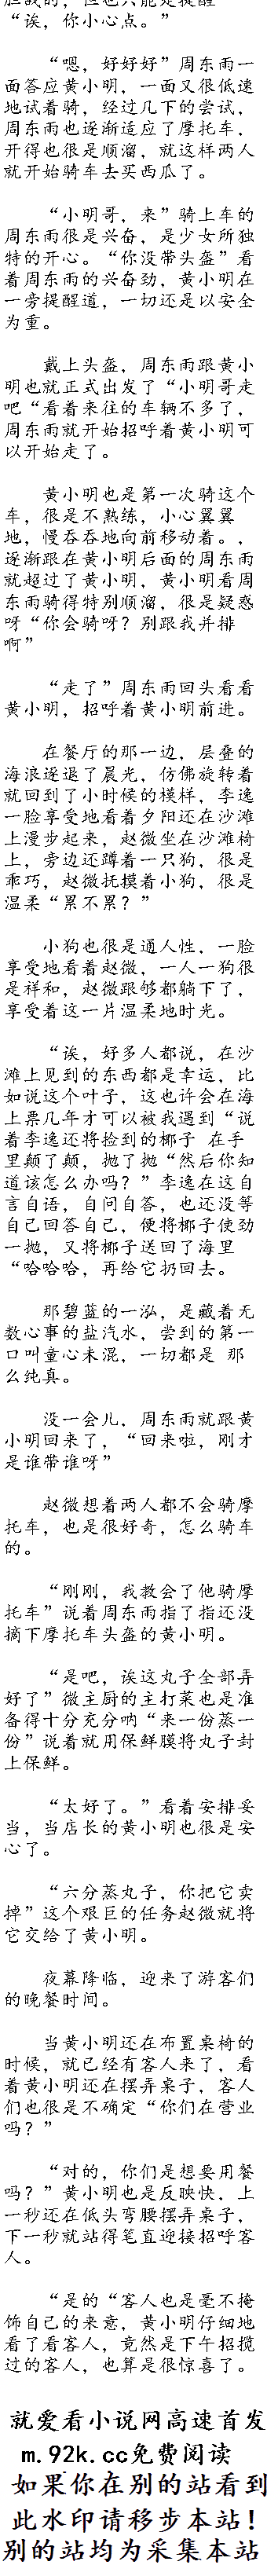 “诶，你小心点。”
“嗯，好好好”周东雨一
面答应黄小明，一面又很低速
地试着骑，经过几下的尝试，
周东雨也逐渐适应了摩托车，
开得也很是顺溜，就这样两人
就开始骑车去买西瓜了。
“小明哥，来”骑上车的
周东雨很是兴奋，是少女所独
特的开心。“你没带头盔”看
着周东雨的兴奋劲，黄小明在
一旁提醒道，一切还是以安全
为重。
戴上头盔，周东雨跟黄小
明也就正式出发了“小明哥走
吧“看着来往的车辆不多了，
周东雨就开始招呼着黄小明可
以开始走了。
黄小明也是第一次骑这个
车，很是不熟练，小心翼翼
地，慢吞吞地向前移动着。，
逐渐跟在黄小明后面的周东雨
就超过了黄小明，黄小明看周
东雨骑得特别顺溜，很是疑惑
呀“你会骑呀？别跟我并排
啊”
“走了”周东雨回头看看
黄小明，招呼着黄小明前进。
在餐厅的那一边，层叠的
海浪逐退了晨光，仿佛旋转着
就回到了小时候的模样，李逸
一脸享受地看着夕阳还在沙滩
上漫步起来，赵微坐在沙滩椅
上，旁边还蹲着一只狗，很是
乖巧，赵微抚摸着小狗，很是
温柔“累不累？”
小狗也很是通人性，一脸
享受地看着赵微，一人一狗很
是祥和，赵微跟够都躺下了，
享受着这一片温柔地时光。
“诶，好多人都说，在沙
滩上见到的东西都是幸运，比
如说这个叶子，这也许会在海
上票几年才可以被我遇到“说
着李逸还将捡到的椰子 在手
里颠了颠，抛了抛“然后你知
道该怎么办吗？”李逸在这自
言自语，自问自答，也还没等
自己回答自己，便将椰子使劲
一抛，又将椰子送回了海里
“哈哈哈，再给它扔回去。
那碧蓝的一泓，是藏着无
数心事的盐汽水，尝到的第一
口叫童心未混，一切都是 那
么纯真。
没一会儿，周东雨就跟黄
小明回来了，“回来啦，刚才
是谁带谁呀”
赵微想着两人都不会骑摩
托车，也是很好奇，怎么骑车
的。
“刚刚，我教会了他骑摩
托车”说着周东雨指了指还没
摘下摩托车头盔的黄小明。
“是吧，诶这丸子全部弄
好了”微主厨的主打菜也是准
备得十分充分呐“来一份蒸一
份”说着就用保鲜膜将丸子封
上保鲜。
“太好了。”看着安排妥
当，当店长的黄小明也很是安
心了。
“六分蒸丸子，你把它卖
掉”这个艰巨的任务赵微就将
它交给了黄小明。
夜幕降临，迎来了游客们
的晚餐时间。
当黄小明还在布置桌椅的
时候，就已经有客人来了，看
着黄小明还在摆弄桌子，客人
们也很是不确定“你们在营业
吗？”
“对的，你们是想要用餐
吗？”黄小明也是反映快，上
一秒还在低头弯腰摆弄桌子，
下一秒就站得笔直迎接招呼客
人。
“是的“客人也是毫不掩
饰自己的来意，黄小明仔细地
看了看客人，竟然是下午招揽
过的客人，也算是很惊喜了。
就爱看小说网高速首发
m.92k.cc免费阅读
如果你在别的站看到
此水印请移步本站！
别的站均为采集本站